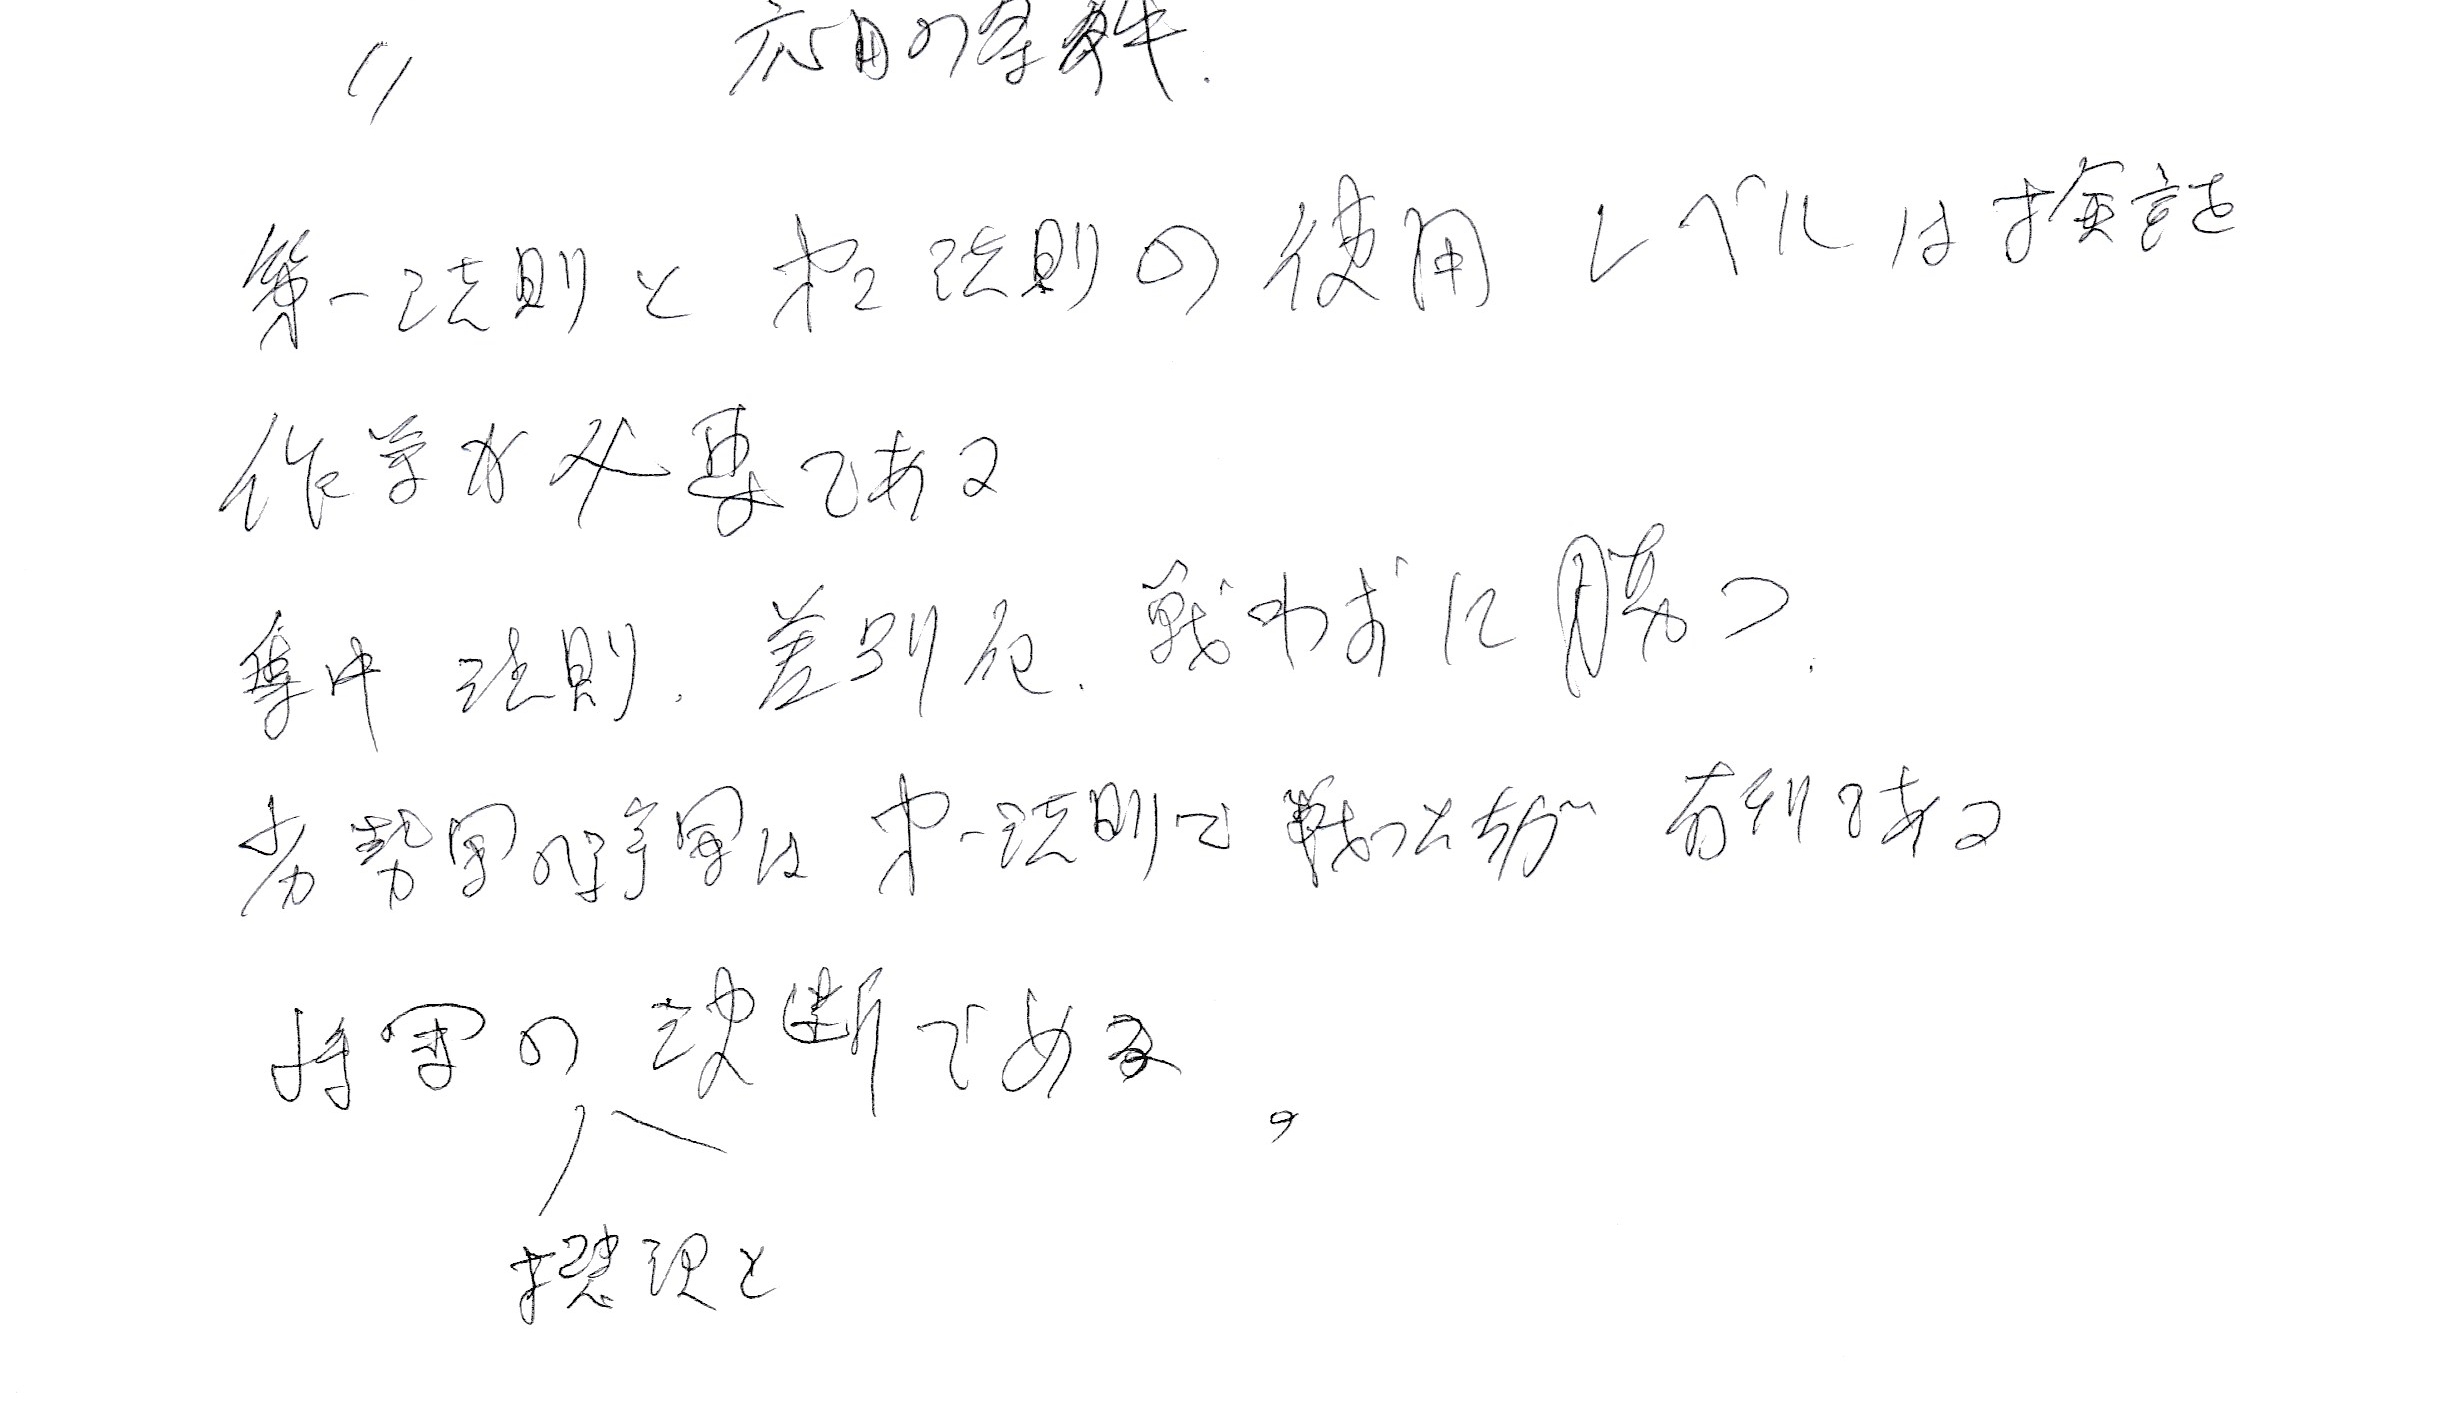 〃 応用の条件.
第一法則と第2法則の使用レベルは検証を
作業が必要である
集中 法則. 差別化. 戦わずに勝つ.
劣勢軍の将軍は第一法則で戦った方が 有利である
将軍の 決断である
認識と